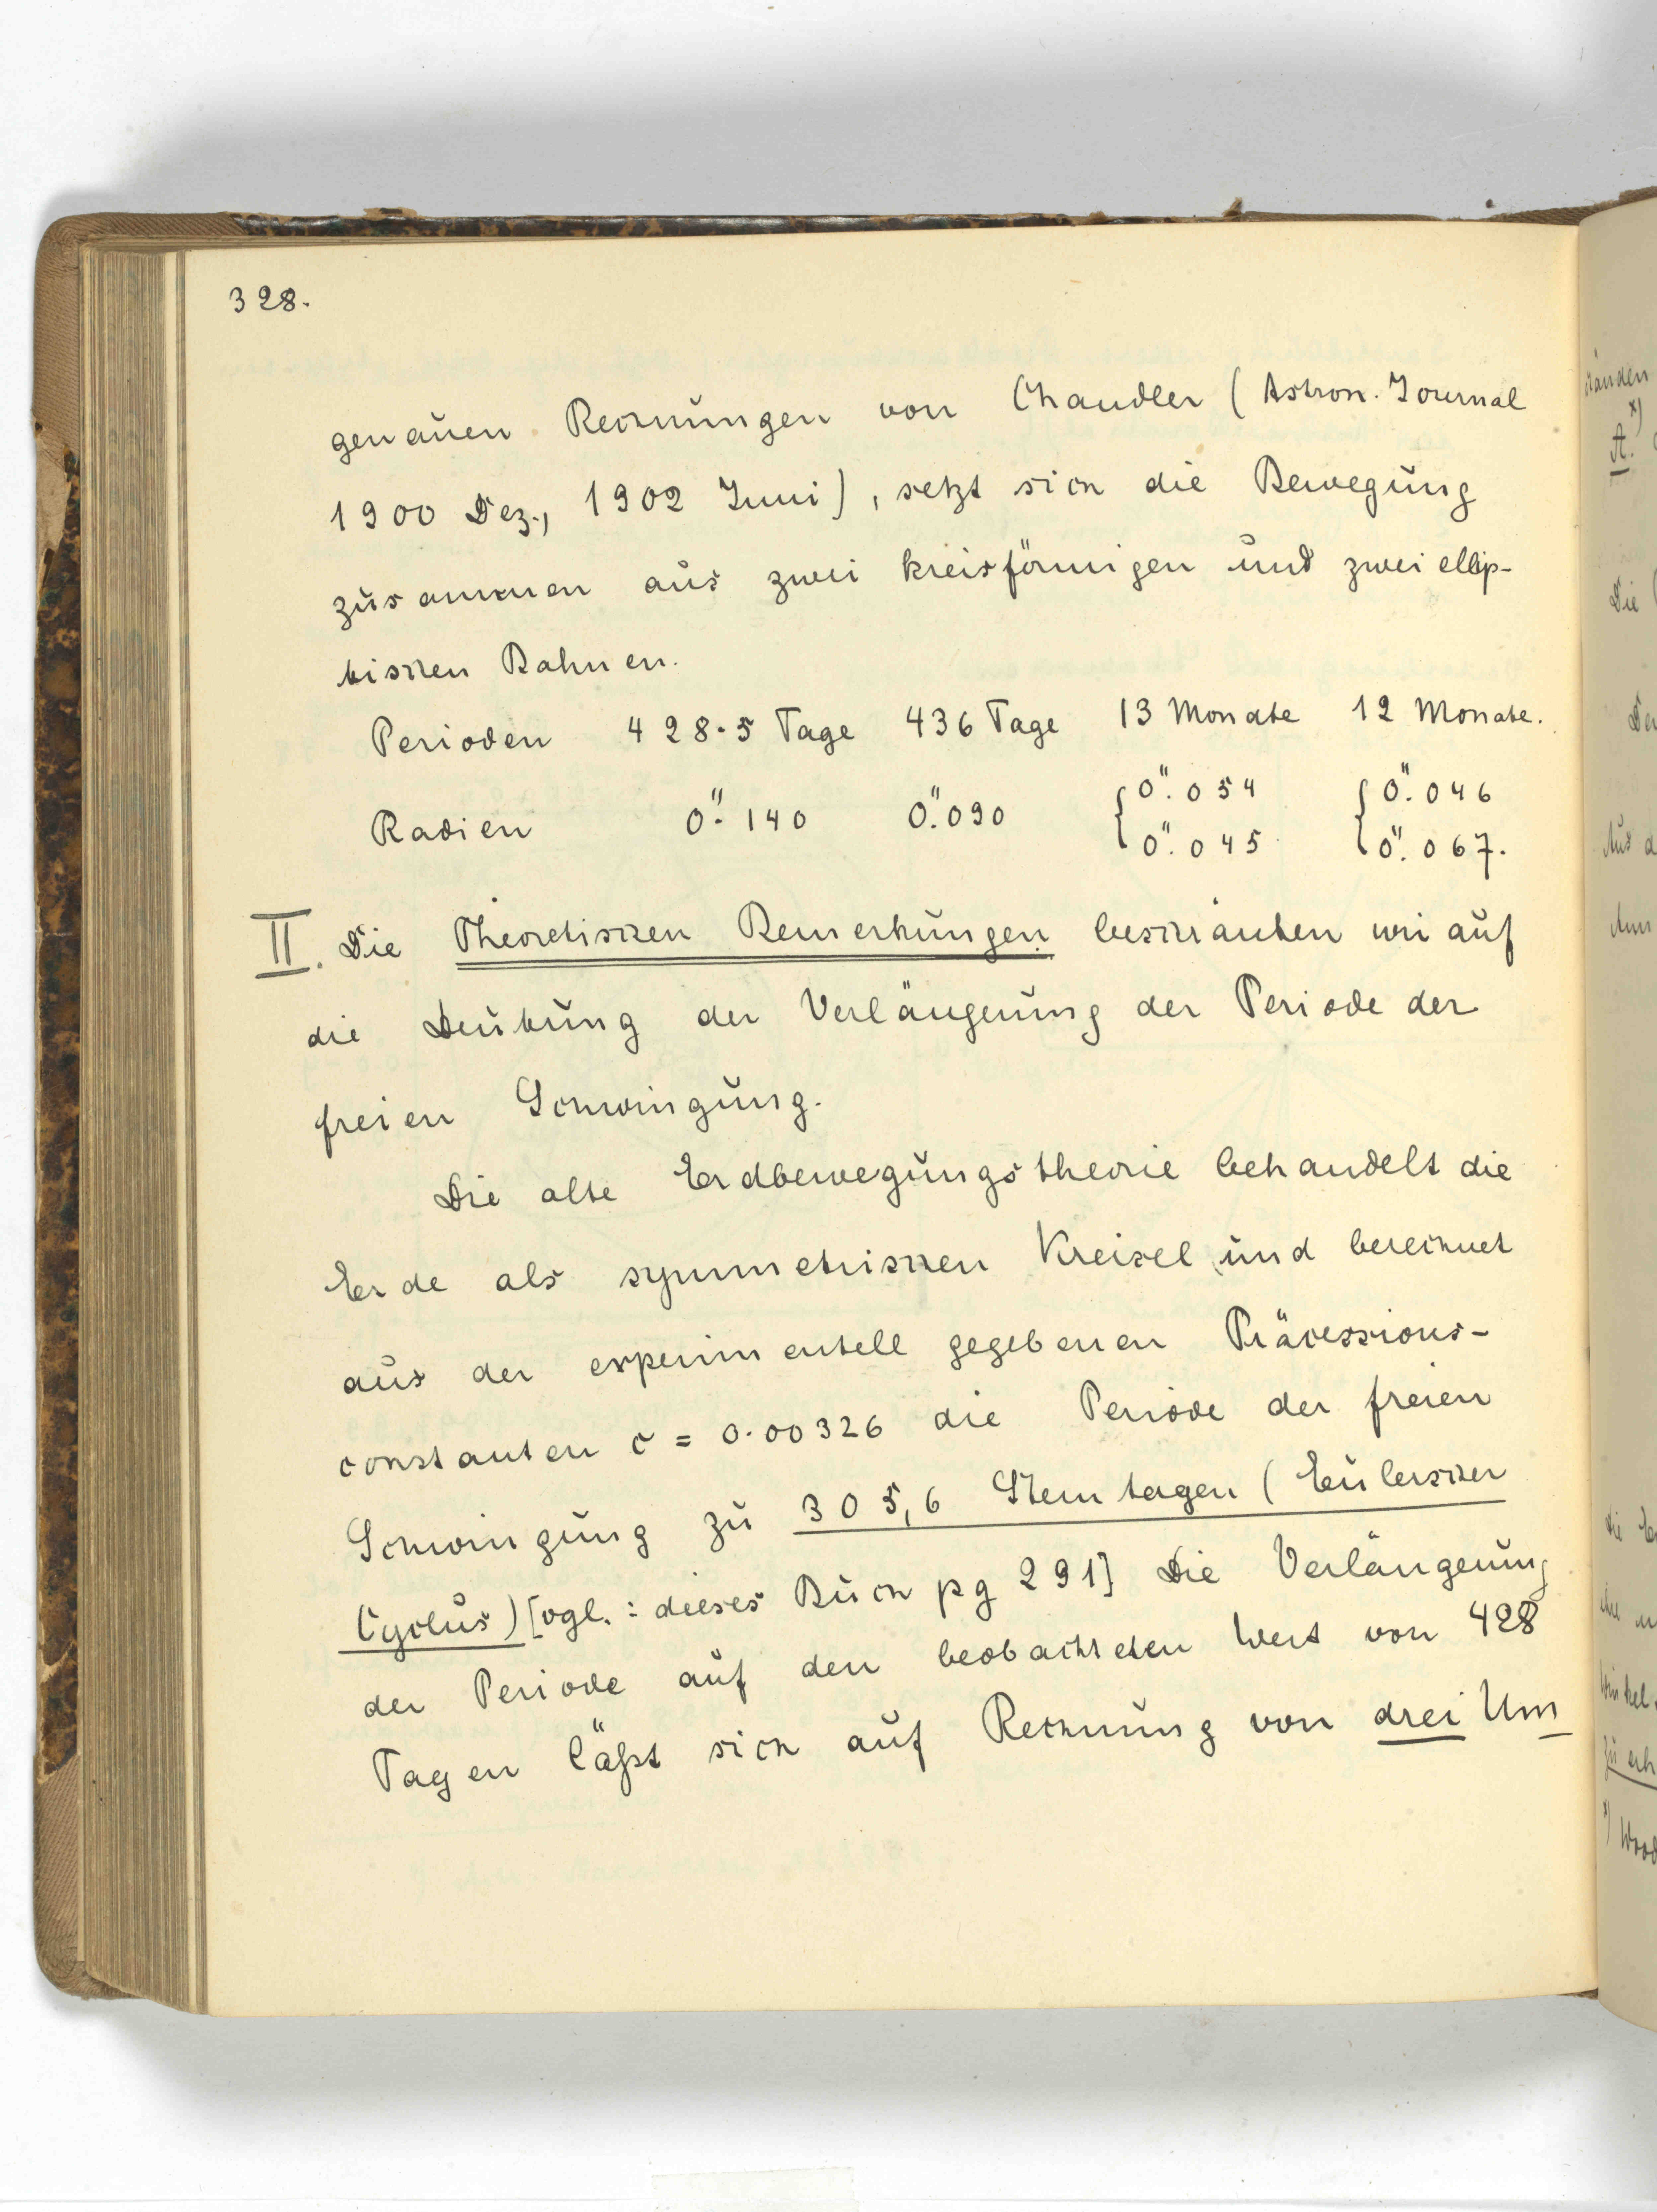 328.
genauen Rechnungen von Chandler (Astron. Journal
1900 Dez., 1902 Juni), setzt sich die Bewegung
zusammen aus zwei kreisförmigen und zwei ellip-
tischen Bahnen.
Perioden 428.5 Tage 436 Tage 13 Monate 12 Monate.
Radien 0".140 0".090 {0".054 {0".046
0".045 0".067.
II. Die Theoretischen Bemerkungen beschränken wir auf
die Deutung der Verlängerung der Periode der
freien Schwingung.
Die alte Erdbewegungstheorie behandelt die
Erde als symmetrischen Kreisel und berechnet
aus der experimentell gegebenen Präcessions-
constanten c = 0.00326 die Periode der freien
Schwingung zu 305,6 Sterntagen (Eulerscher
Cyclus) [vgl.: dieses Buch pg 291] Die Verlängerung
der Periode auf den beobachteten Wert von 428
Tagen läßt sich auf Rechnung von drei Um